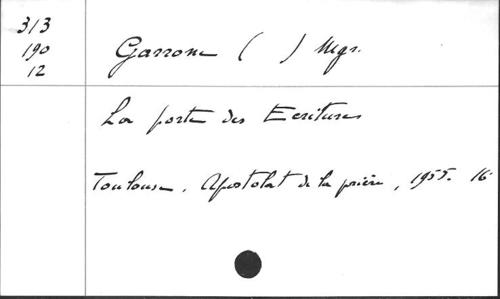 313
190
12
Garrone ( ) Mgr.
La porte des Ecritures
Toulouse, Apostolat de la prière, 1955. 16